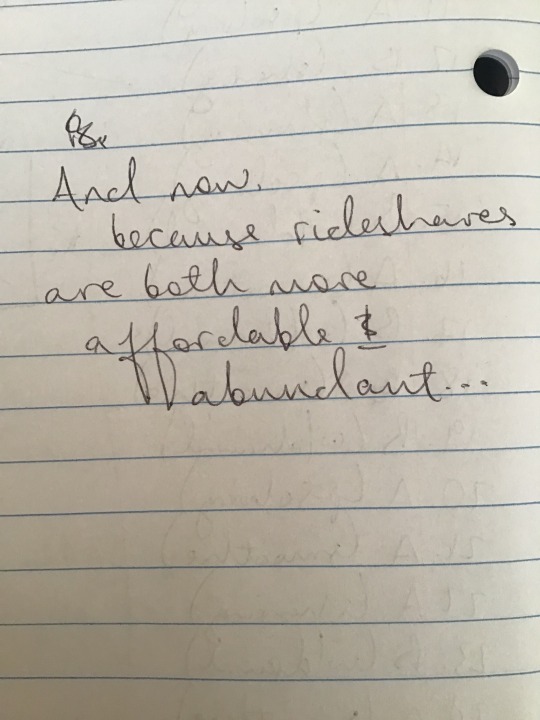 And now,
because rideshares
are both more
affordable &
abundant...